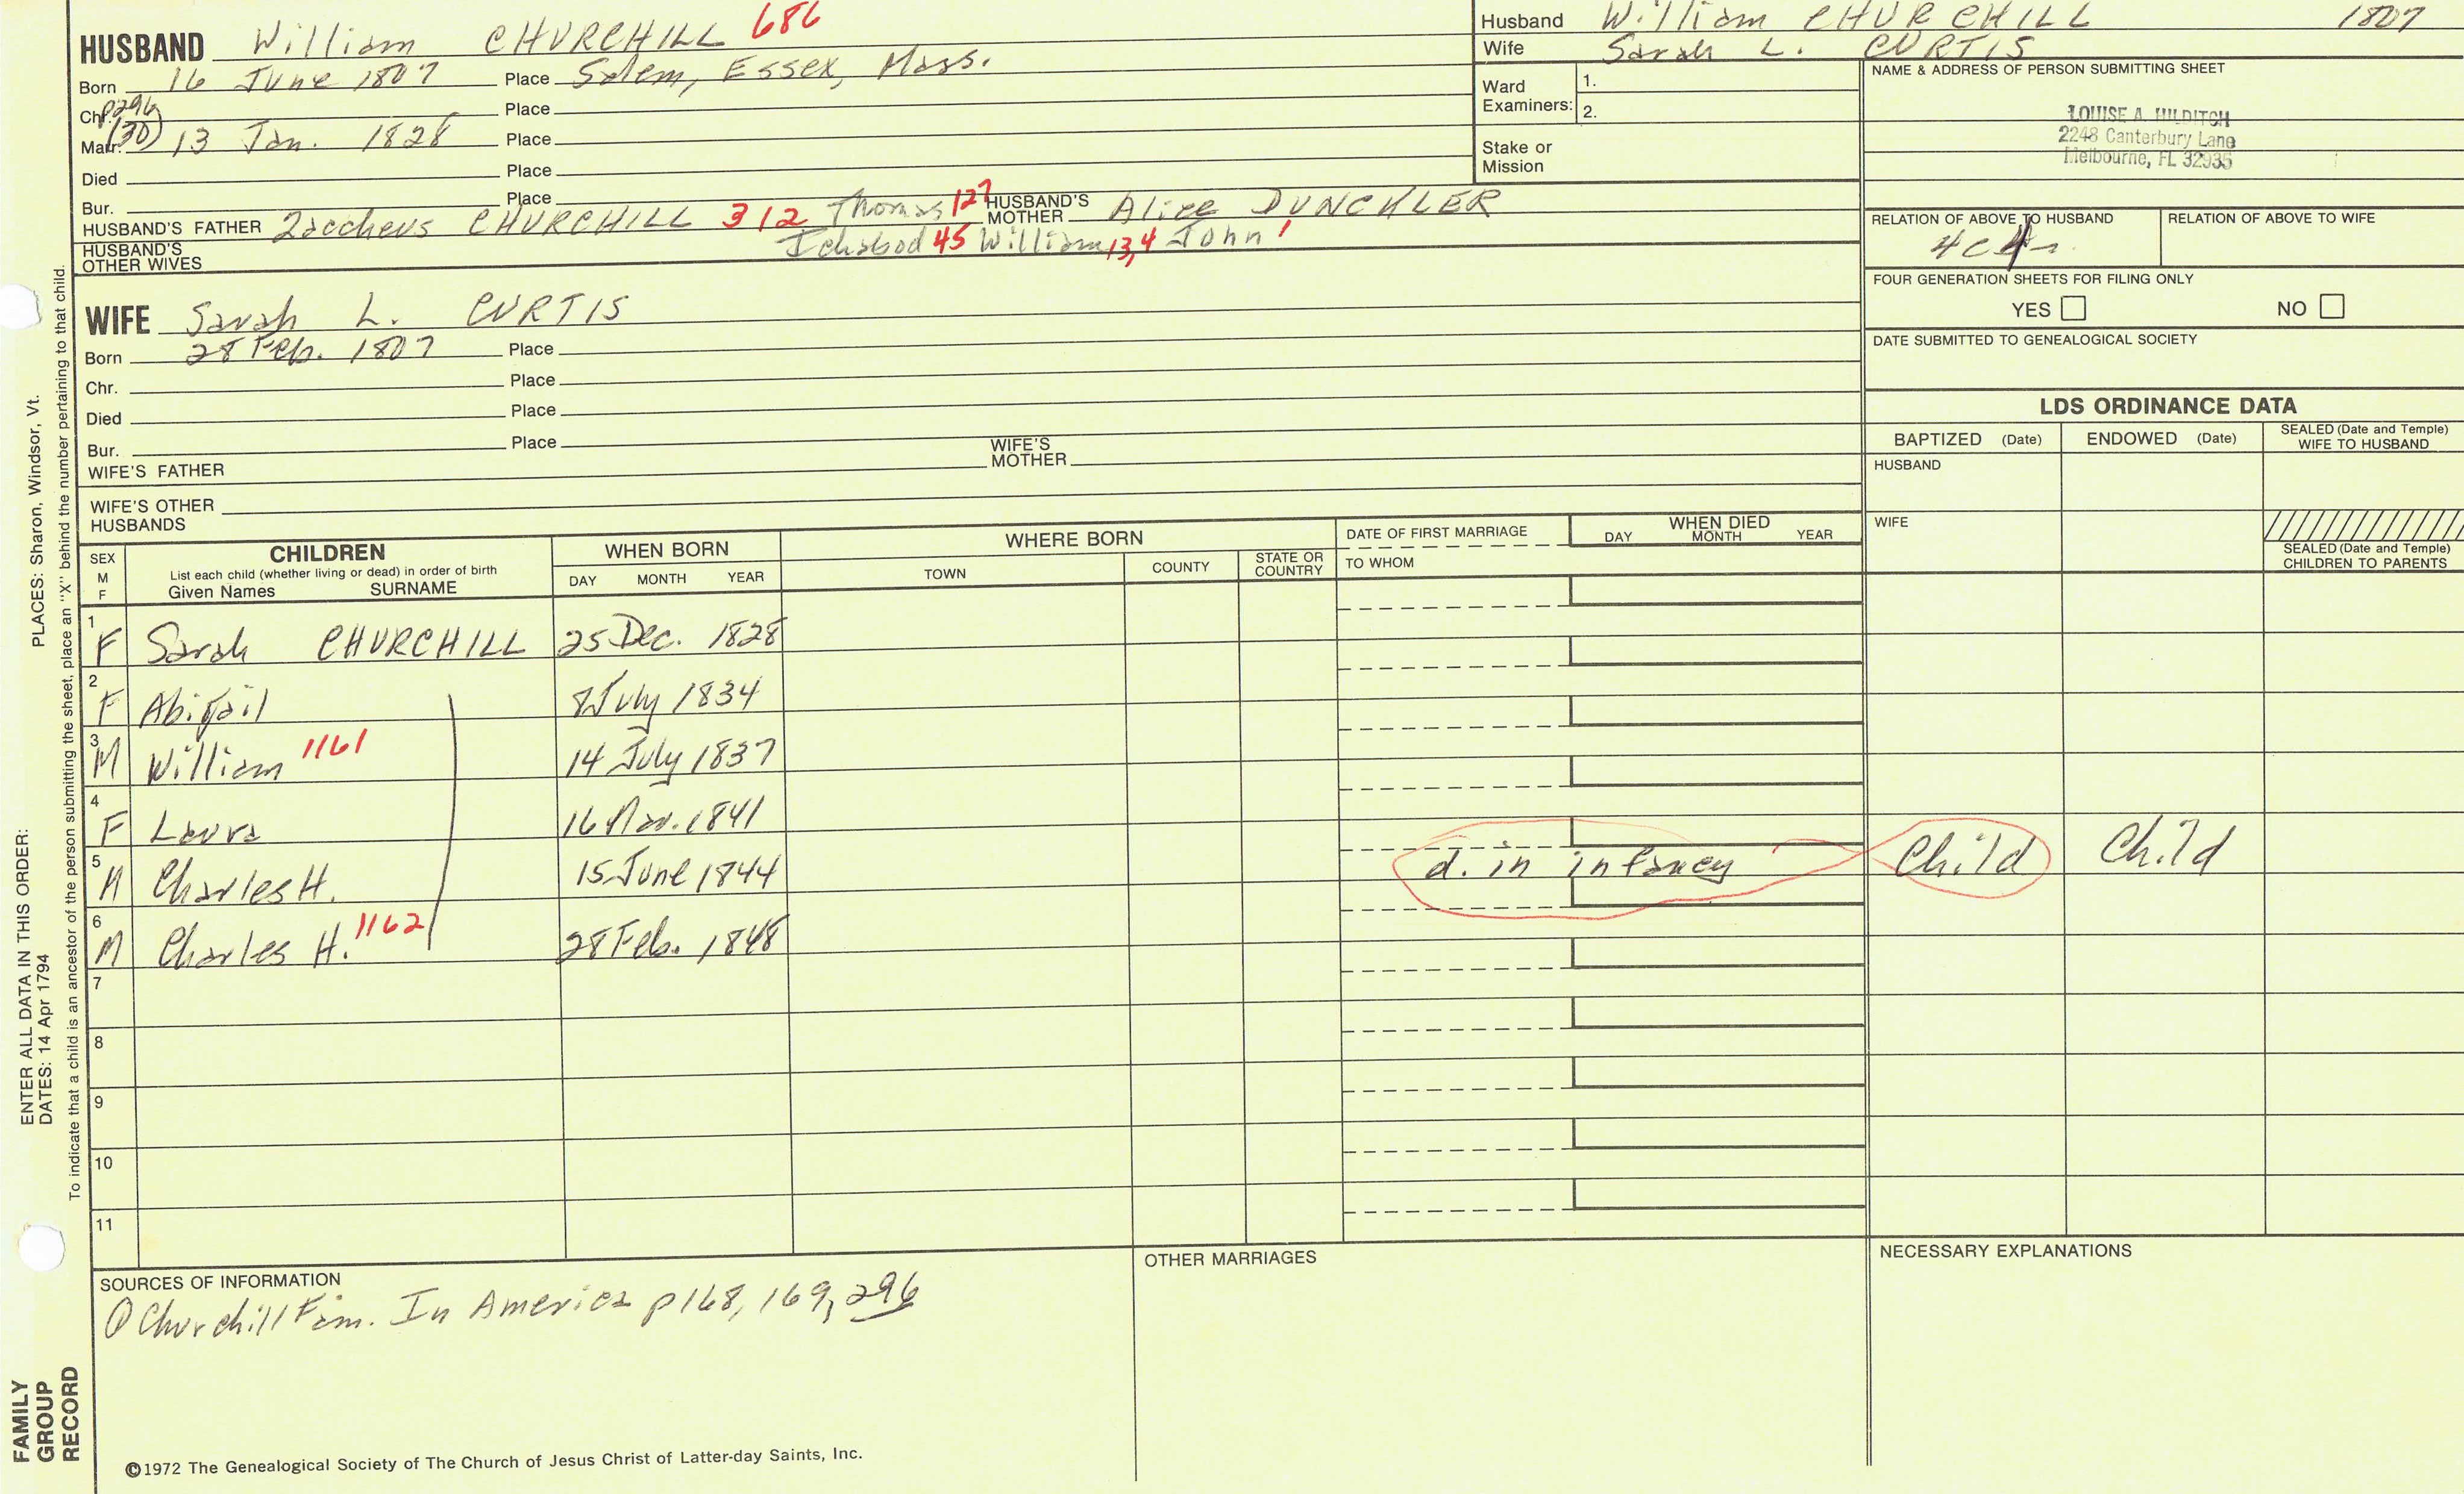 HUSBAND William CHURCHILL 686
Born 16 June 1807 Place Salem, Essex, Mass.
Chr. p296 Place
Marr. (30) 13 Jan. 1828 Place
Died Place
Bur. Place
HUSBAND'S FATHER Zaccheus CHURCHILL 312 Thomas 127 HUSBAND'S MOTHER Alice DUNCKLER
Ichabod 45 William 13, 4 John 1
HUSBAND'S OTHER WIVES
Husband William CHURCHILL 1807
Wife Sarah L. CURTIS
Ward Examiners: 1.
2.
Stake or Mission
NAME & ADDRESS OF PERSON SUBMITTING SHEET
LOUISE A. HILDITCH
2248 Canterbury Lane
Melbourne, FL 32935
RELATION OF ABOVE TO HUSBAND
RELATION OF ABOVE TO WIFE
FOUR GENERATION SHEETS FOR FILING ONLY
YES NO
DATE SUBMITTED TO GENEALOGICAL SOCIETY
WIFE Sarah L. CURTIS
Born 28 Feb. 1807 Place
Chr. Place
Died Place
Bur. Place
WIFE'S FATHER WIFE'S MOTHER
WIFE'S OTHER HUSBANDS
LDS ORDINANCE DATA
BAPTIZED (Date) ENDOWED (Date) SEALED (Date and Temple) WIFE TO HUSBAND
HUSBAND
WIFE
SEALED (Date and Temple) CHILDREN TO PARENTS
SEX M F
CHILDREN
List each child (whether living or dead) in order of birth
Given Names SURNAME
WHEN BORN
DAY MONTH YEAR
WHERE BORN
TOWN COUNTY STATE OR COUNTRY
DATE OF FIRST MARRIAGE
TO WHOM
WHEN DIED
DAY MONTH YEAR
1 F Sarah CHURCHILL 25 Dec. 1828
2 F Abigail 8 July 1834
3 M William 1161 14 July 1837
4 F Laura 16 1841
5 M Charles H. 15 June 1844 d. in infancy Child Child
6 M Charles H. 1162 28 Feb. 1848
7
8
9
10
11
SOURCES OF INFORMATION
① Churchill Fam. In America p168, 169, 296
OTHER MARRIAGES
NECESSARY EXPLANATIONS
©1972 The Genealogical Society of The Church of Jesus Christ of Latter-day Saints, Inc.
FAMILY GROUP RECORD
ENTER ALL DATA IN THIS ORDER:
DATES: 14 Apr 1794
PLACES: Sharon, Windsor, Vt.
To indicate that a child is an ancestor of the person submitting the sheet, place an "X" behind the number pertaining to that child.